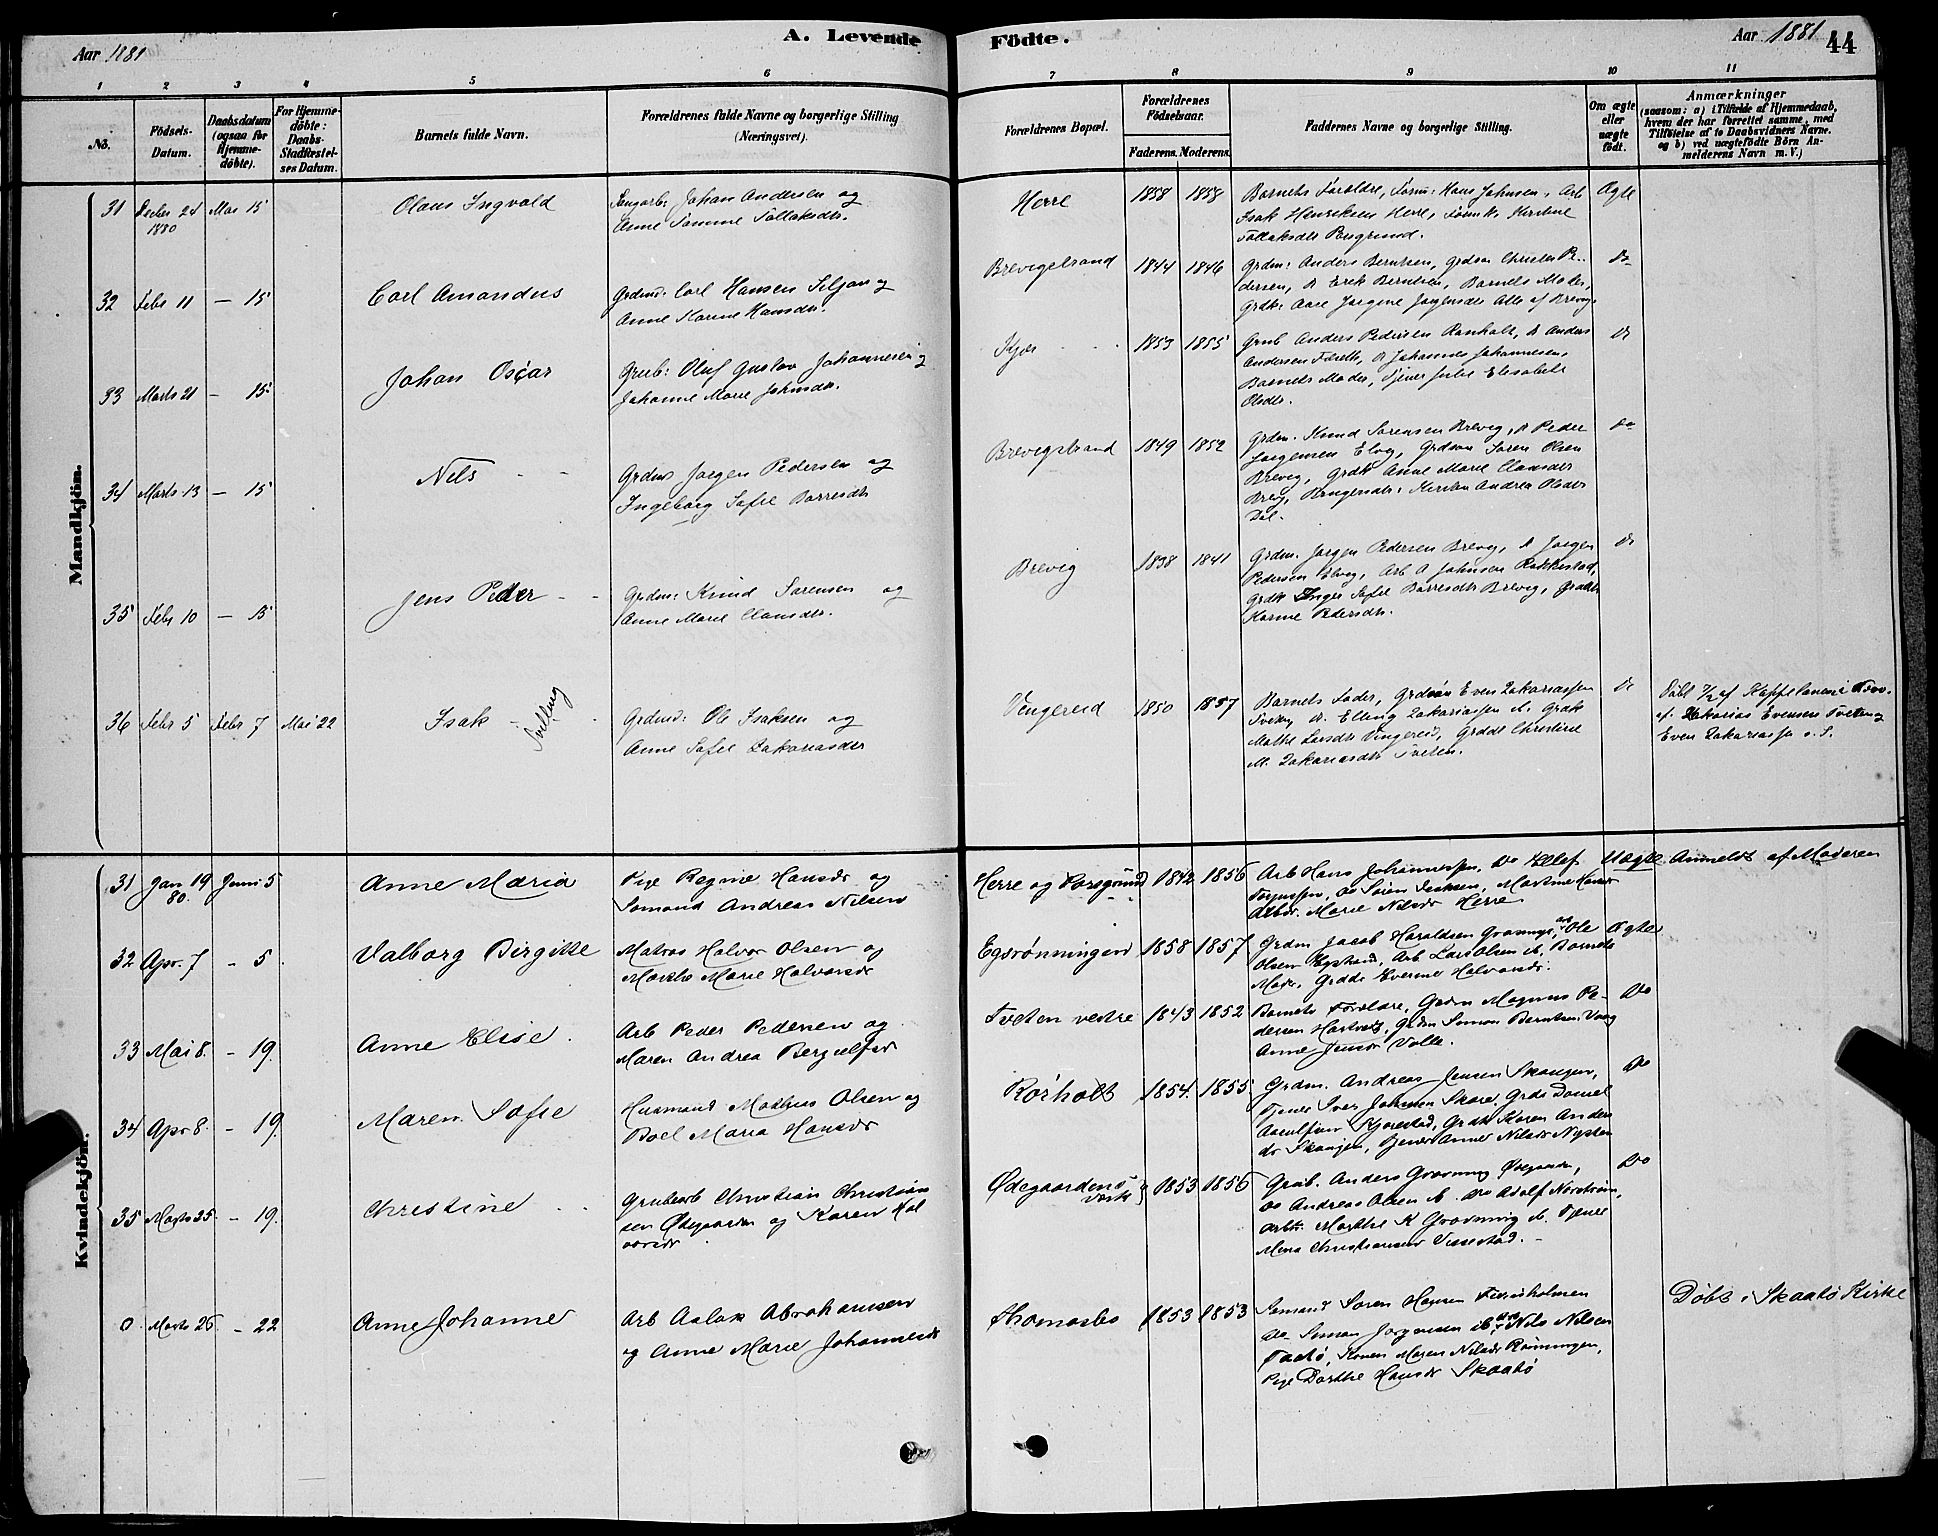 Aar 1881
A. Levende Födte.
Aar 1881
44
1 2 3 4 5 6 7 8 9 10 11
No. Födsels-Datum. Daabsdatum (ogsaa for Hjemme-döbte). For Hjemme-döbte: Daabs-Stadfæstel-ses Datum. Barnets fulde Navn. Forældrenes fulde Navne og borgerlige Stilling (Næringsvei). Forældrenes Bopæl. Forældrenes Födselsaar. Faderens. Moderens. Faddernes Navne og borgerlige Stilling. Om ægte eller uægte födt. Anmærkninger (saasom: a) i Tilfælde af Hjemmedaab, hvem der har forrettet samme, med Tilföielse af to Daabsvidners Navne. og b) ved uægtefödte Börn An-melderens Navn m. V.)
Mandkjön.
31 Decbr 24 1880 Mai 15 Olaus Ingvald
Johan Andersen og
Anne Tomine Tollaksdr.
Herre 1858 1858
Barnets Forældre, Hans Johnsen, Arb
Isak Henriksen Herre, Kirstine
Tollaksdr Porsgrund.
Ægte
32 Febr 11 — 15 Carl Amandus
Grdmd: Carl Hansen Seljan og
Anne Karine Hansdr.
Brevigstrand 1844 1846
Grdm: Anders Berntsen, Grdsøn Christen Pe-
dersen, Do Erek Berntsen, Barnets Moder,
Grdk: Aase Jørgine Jørgensdr Alle af Brevig.
Do
33 Marts 21 — 15 Johan Oscar
Grub: Oluf Gustav Johannesen og
Johanne Marie Johnsdr.
Kjær 1853 1855
Grub Anders Pedersen Ranholt, Do Anders
Andersen, Do Johannes Johannesen,
Barnets Moder, Tjener Elisabet
Olsdr.
Do
34 Marts 13 — 15 Nels
Grdmd Jørgen Pedersen og
Ingeborg Sofie Børresdr
Brevigstrand 1849 1852
Grdm. Knud Sørensen Brevig, Do Peder
Jørgensen Elvig, Grdsøn Søren Olsen
Brevig, Grdk Anne Marie Clausdr
Brevig, Kirsten Andrea Olsdr
Dal.
Do
35 Febr 10 — 15 Jens Peder
Grdm: Knud Sørensen og
Anne Marie Clausdr.
Brevig 1838 1841
Grdm. Jørgen Pedersen Brevig, Do Jørgen
Pedersen Elvig, Arb A Johnsen Rakkestad,
Grdk Inger Sofie Børresdr Brevig, Grddtr
Karine Pedersdr.
Do
36 Febr 5 Febr 7 Mai 22 Isak
Tvilling
Grdmd: Ole Isaksen og
Anne Sofie Zakariasdr
Vingereid 1850 1857
Barnets Fader, Grdsøn Even Zakariassen
Tveten Do Elling Zakariassen ib. Grdk
Mathe Larsdtr Vingereid, Grddtr Christine
M. Zakariasdtr Tveten.
Do
Døbt 7/2 af
af Zakarias Evensen Tveten og
Even Zakariassen s. S.
Kvindekjön.
31 Jan 19 80. Juni 5 Anne Maria
Pige Regine Hansdr og
Sømand Andreas Nilsen
Herre og Porsgrund 1842 1856
Arb Hans Johannesen, Do Ellef
Do Søren Isaksen, Martine Hansdr
Marie Nilsdr Herre
Uægte Anmeldt af Moderen
32 Apr. 7 - 5 Valborg Birgitte
Matros Halvor Olsen og
Marthe Marie Halvorsdr
Egsrønningen 1858 1857
Grdm Jacob Haraldsen Gravningen, Ole
Olsen, Arb Lars Olsen ib, Barnets
Moder, Grddt Evenine Halvorsdr.
Ægte
33 Mai 8. - 19. Anne Elise.
Arb Peder Pedersen og
Maren Andrea
Tveten vestre 1843 1852
Barnets Forældre, Grdm Magnus Pe-
dersen, Grdm Simon Berntsen
Anne Jensdr Valle.
Do
34 Apr 8. - 19. Maren Sofie
Husmand Mathias Olsen og
Boel Maria Hansdr
Rørholt 1854. 1855
Grdm. Andreas Jensen Skaugen,
Tjener Iver Johnsen Skare, Grds Daniel
Kjørestad, Grdk Karen Anders
dr Skaugen, Tjener Anne Nilsdr Nysten
Do
35 Marts 25. - 19. Christine
Grubearb Christian Christian
sen Ødegaarden og Karen Hal
vorsdr
Ødegaardens Værk 1853 1856
Grub. Anders Gravning Ødegaarden,
Do Andreas Olsen ib. Do Adolf Norstrøm,
Arbk: Marthe K Gravning ib. Tjener
Mina Christiansdr Tissestad.
Do
0 Marts 26 - 22 Anne Johanne
Arb Aslak Abrahamsen
og Anne Marie Johannesdr
Thomasbo 1853 1853
Sømand Søren Hansen
Do Simon Jørgensen ib, Do Nils Nilsen
Taatø, Konen Maren Nilsdr Rønningen,
Pige Dorthe Hansdr Skaatø
Døbt i Skaatø Kirke